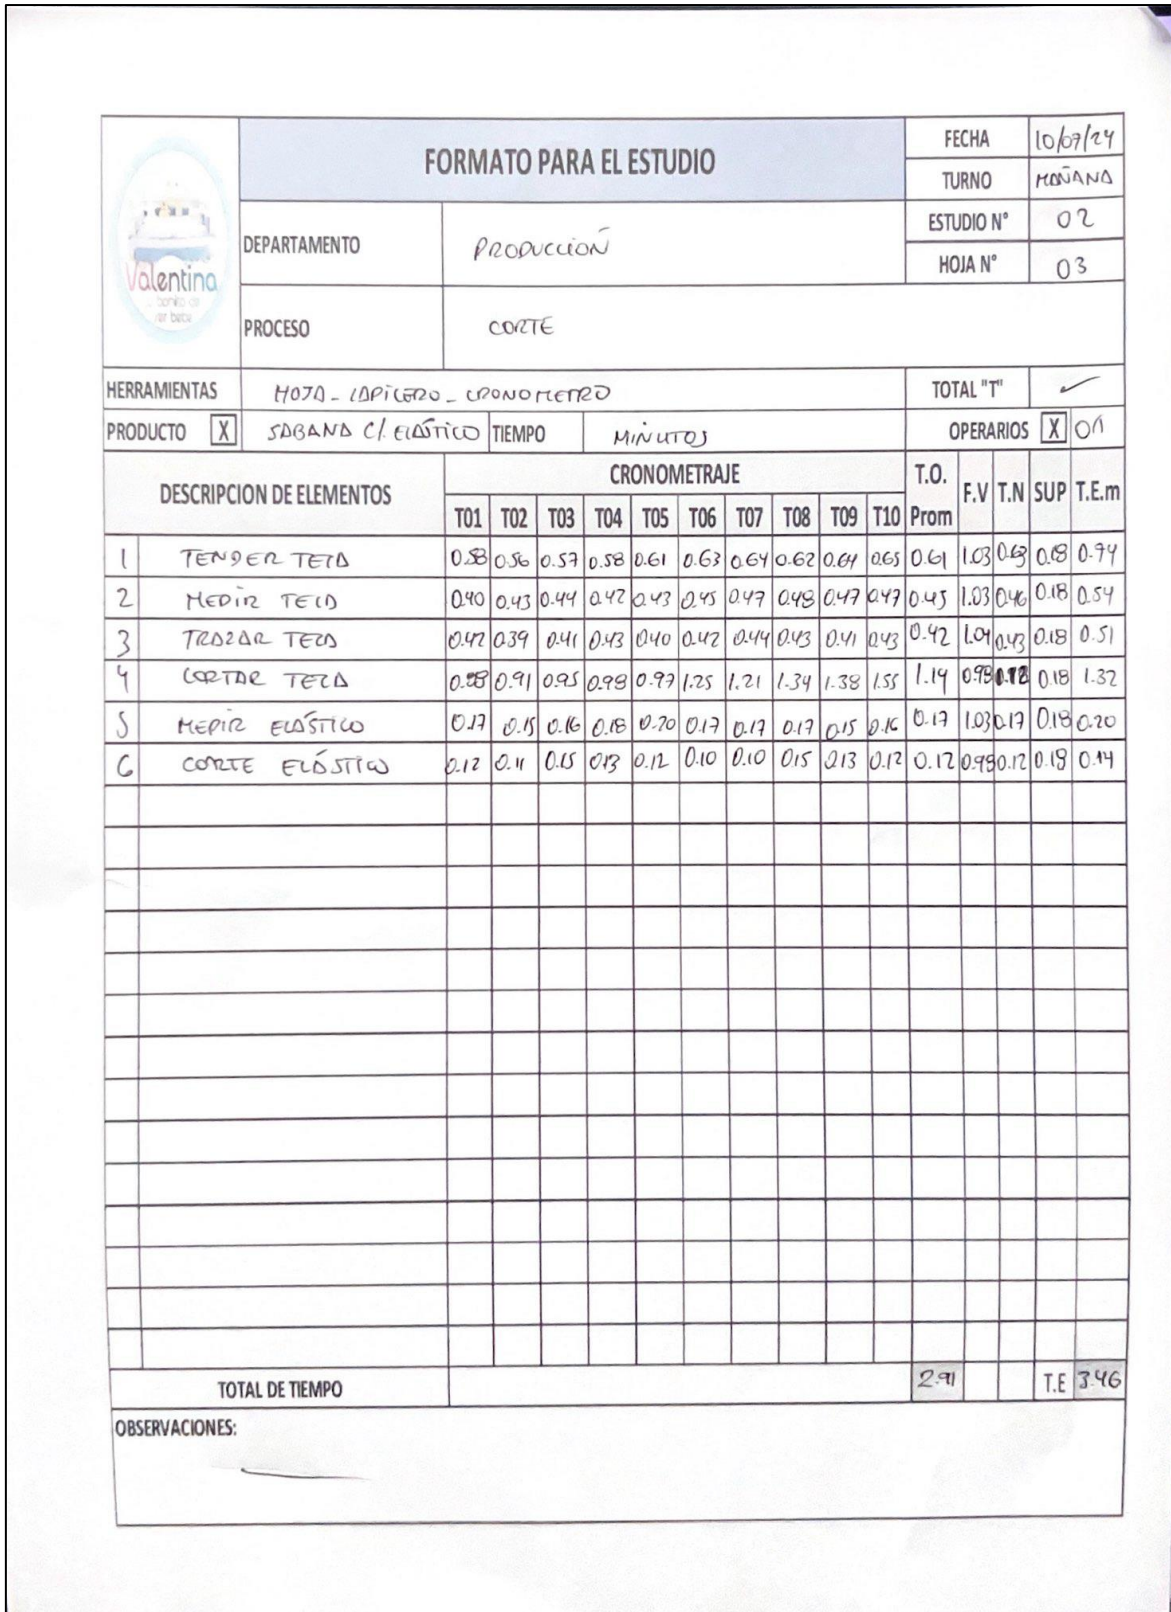 FORMATO PARA EL ESTUDIO
FECHA 10/07/24
TURNO MAÑANA
Valentina
DEPARTAMENTO PRODUCCIÓN
ESTUDIO N° 02
HOJA N° 03
PROCESO CORTE
HERRAMIENTAS HOJA - LAPICERO - CRONOMETRO TOTAL "T" ✓
PRODUCTO X SABANA C/. ELÁSTICO TIEMPO MINUTOS OPERARIOS X 01
DESCRIPCION DE ELEMENTOS CRONOMETRAJE T.O. Prom F.V T.N SUP T.E.m
T01 T02 T03 T04 T05 T06 T07 T08 T09 T10
1 TENDER TELA 0.58 0.56 0.57 0.58 0.61 0.63 0.64 0.62 0.64 0.65 0.61 1.03 0.63 0.18 0.74
2 MEDIR TELA 0.40 0.43 0.44 0.42 0.43 0.45 0.47 0.48 0.47 0.47 0.45 1.03 0.46 0.18 0.54
3 TRAZAR TELA 0.42 0.39 0.41 0.43 0.40 0.42 0.44 0.43 0.41 0.43 0.42 1.04 0.43 0.18 0.51
4 CORTAR TELA 0.88 0.91 0.95 0.98 0.97 1.25 1.21 1.34 1.38 1.55 1.14 0.98 0.18 1.32
5 MEDIR ELÁSTICO 0.17 0.15 0.16 0.18 0.20 0.17 0.17 0.17 0.15 0.16 0.17 1.03 0.17 0.18 0.20
6 CORTE ELÁSTICO 0.12 0.11 0.15 0.13 0.12 0.10 0.10 0.15 0.13 0.12 0.12 0.98 0.12 0.18 0.14
TOTAL DE TIEMPO 2.91 T.E 3.46
OBSERVACIONES: